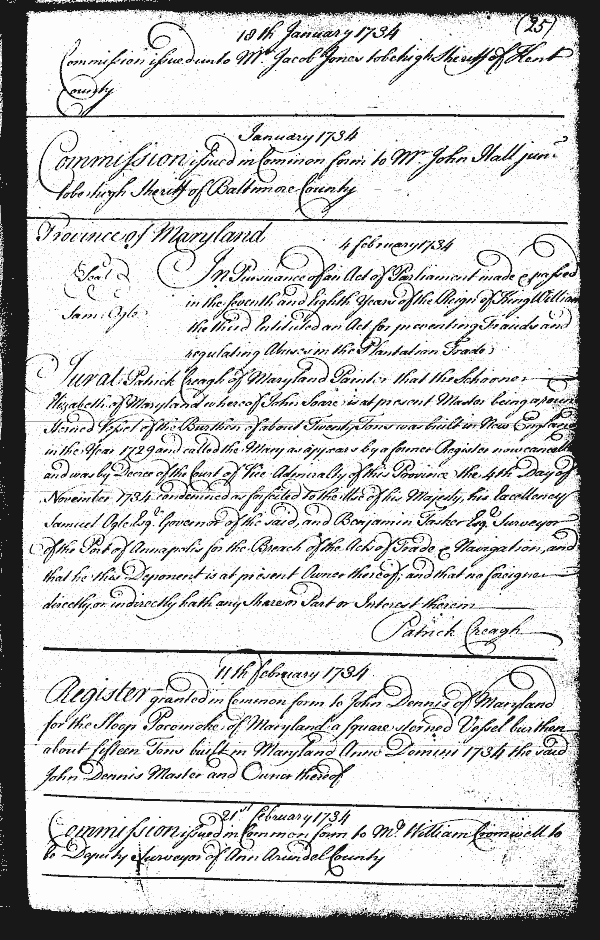 (25)
18th January 1734
Commission issued unto Mr Jacob Jones to be high Sheriff of Kent
County
January 1734
Commission issued in Common form to Mr John Hall junr
to be high Sheriff of Baltimore County
Province of Maryland
4 february 1734
Seal
Sam: Ogle
In Pursuance of an Act of Parliament made & passed
in the seventh and Eighth Years of the Reign of King William
the third Entituled an Act for preventing Frauds and
regulating Abuses in the Plantation Trade
Jurat Patrick Creagh of Maryland Painter that the Schooner
Elizabeth of Maryland whereof John Soare is at present Master being a round
Sterned Vessel of the Burthen of about Twenty Tons was built in New England
in the Year 1729 and called the Mary as appears by a former Register now cancelled
and was by Decree of the Court of Vice Admiralty of this Province the 4th Day of
November 1734 condemned as forfeited to the Use of his Majesty, his Excellency
Samuel Ogle Esqr Governor of the said, and Benjamin Tasker Esqr Surveyor
of the Port of Annapolis for the Breach of the Acts of Trade & Navigation, and
that he this Deponent is at present Owner thereof; and that no foreigner
directly or indirectly hath any Share or Part or Interest therein
Patrick Creagh
11th february 1734
Register granted in Common form to John Dennis of Maryland
for the Sloop Pocomoke of Maryland a square sterned Vessel burthen
about fifteen Tons built in Maryland Anno Domini 1734 the said
John Dennis Master and Owner thereof
21st february 1734
Commission issued in Common form to Mr William Cromwell to
be Deputy Surveyor of Ann Arundel County